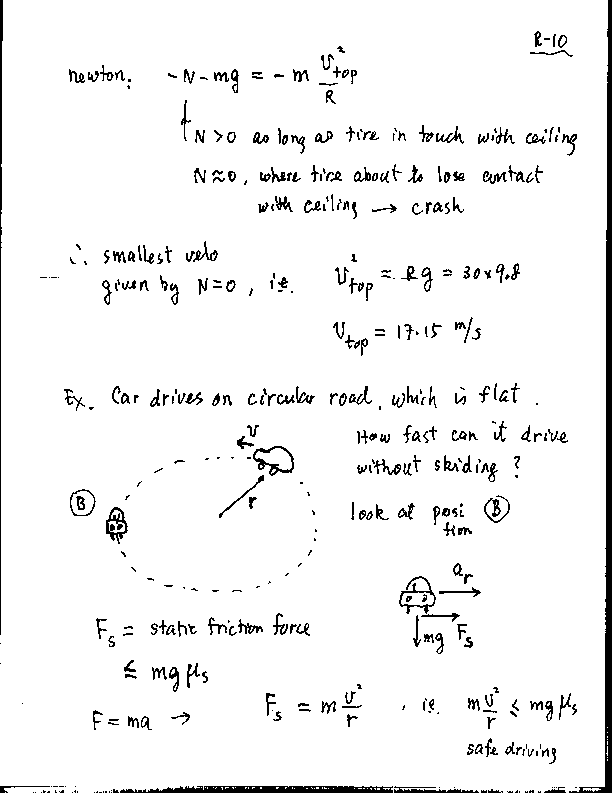 R-10
newton: -N - mg = - m v²top / R
N > 0 as long as tire in touch with ceiling
N ≈ 0, where tire about to lose contact
with ceiling → crash
∴ smallest velo
given by N = 0, i.e. v²top = Rg = 30 x 9.8
vtop = 17.15 m/s
Ex. Car drives on circular road, which is flat.
How fast can it drive
without skiding?
v
r
B
look at posi B
tion
ar
Fs
mg
Fs = static friction force
≤ mg μs
F = ma → Fs = m v²/r , i.e. m v²/r ≤ mg μs
safe driving